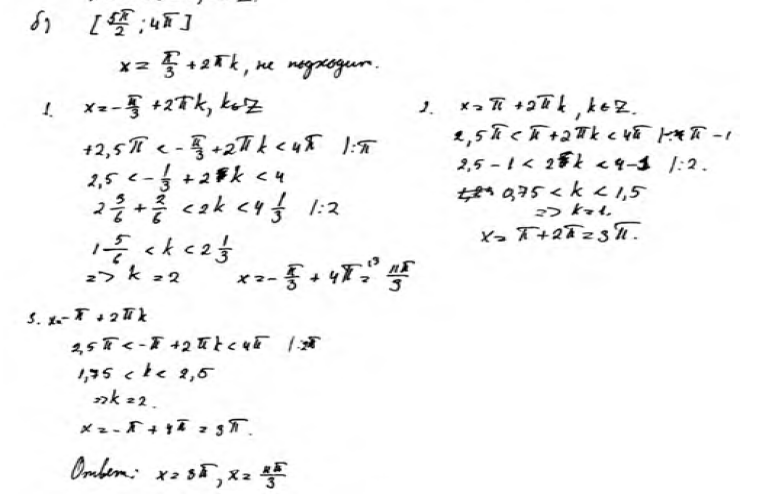 б) [5π/2 ; 4π]
x = π/3 + 2πk, не подходит.
1. x = -π/3 + 2πk, k∈Z
+2,5π < -π/3 + 2πk < 4π |:π
2,5 < -1/3 + 2k < 4
2 3/6 + 2/6 < 2k < 4 1/3 |:2
1 5/6 < k < 2 1/3
=> k = 2 x = -π/3 + 4π = 11π/3
2. x = π + 2πk, k∈Z.
2,5π < π + 2πk < 4π |:π -1
2,5 - 1 < 2k < 4 - 1 |:2.
0,75 < k < 1,5
=> k = 1.
x = π + 2π = 3π.
3. x = -π + 2πk
2,5π < -π + 2πk < 4π |:2π
1,75 < k < 2,5
=> k = 2.
x = -π + 4π = 3π.
Ответ: x = 3π, x = 11π/3